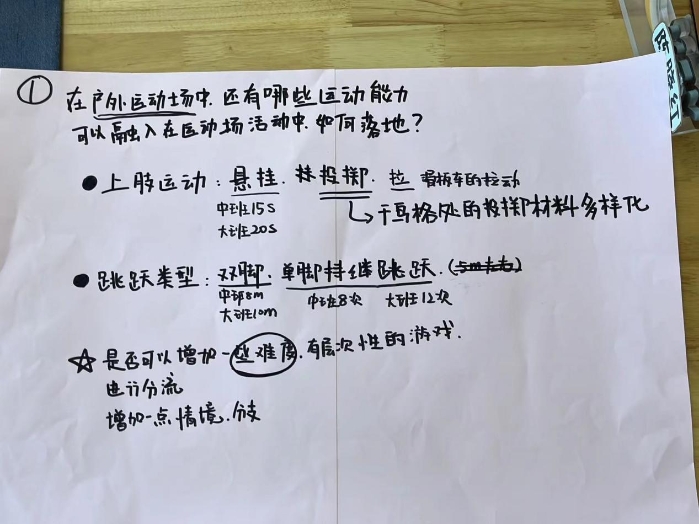 ① 在户外运动场中，还有哪些运动能力
可以融入在运动场活动中，如何落地？
● 上肢运动：悬挂、投掷、拉 滑板车的拉动
中班15s
大班20s
→ 格处的投掷材料多样化
● 跳跃类型：双脚、单脚持续跳跃、
中班8m 中班8次 大班12次
大班10m
☆ 是否可以增加一些难度，有层次性的游戏.
进行分流
增加一点情境、分支